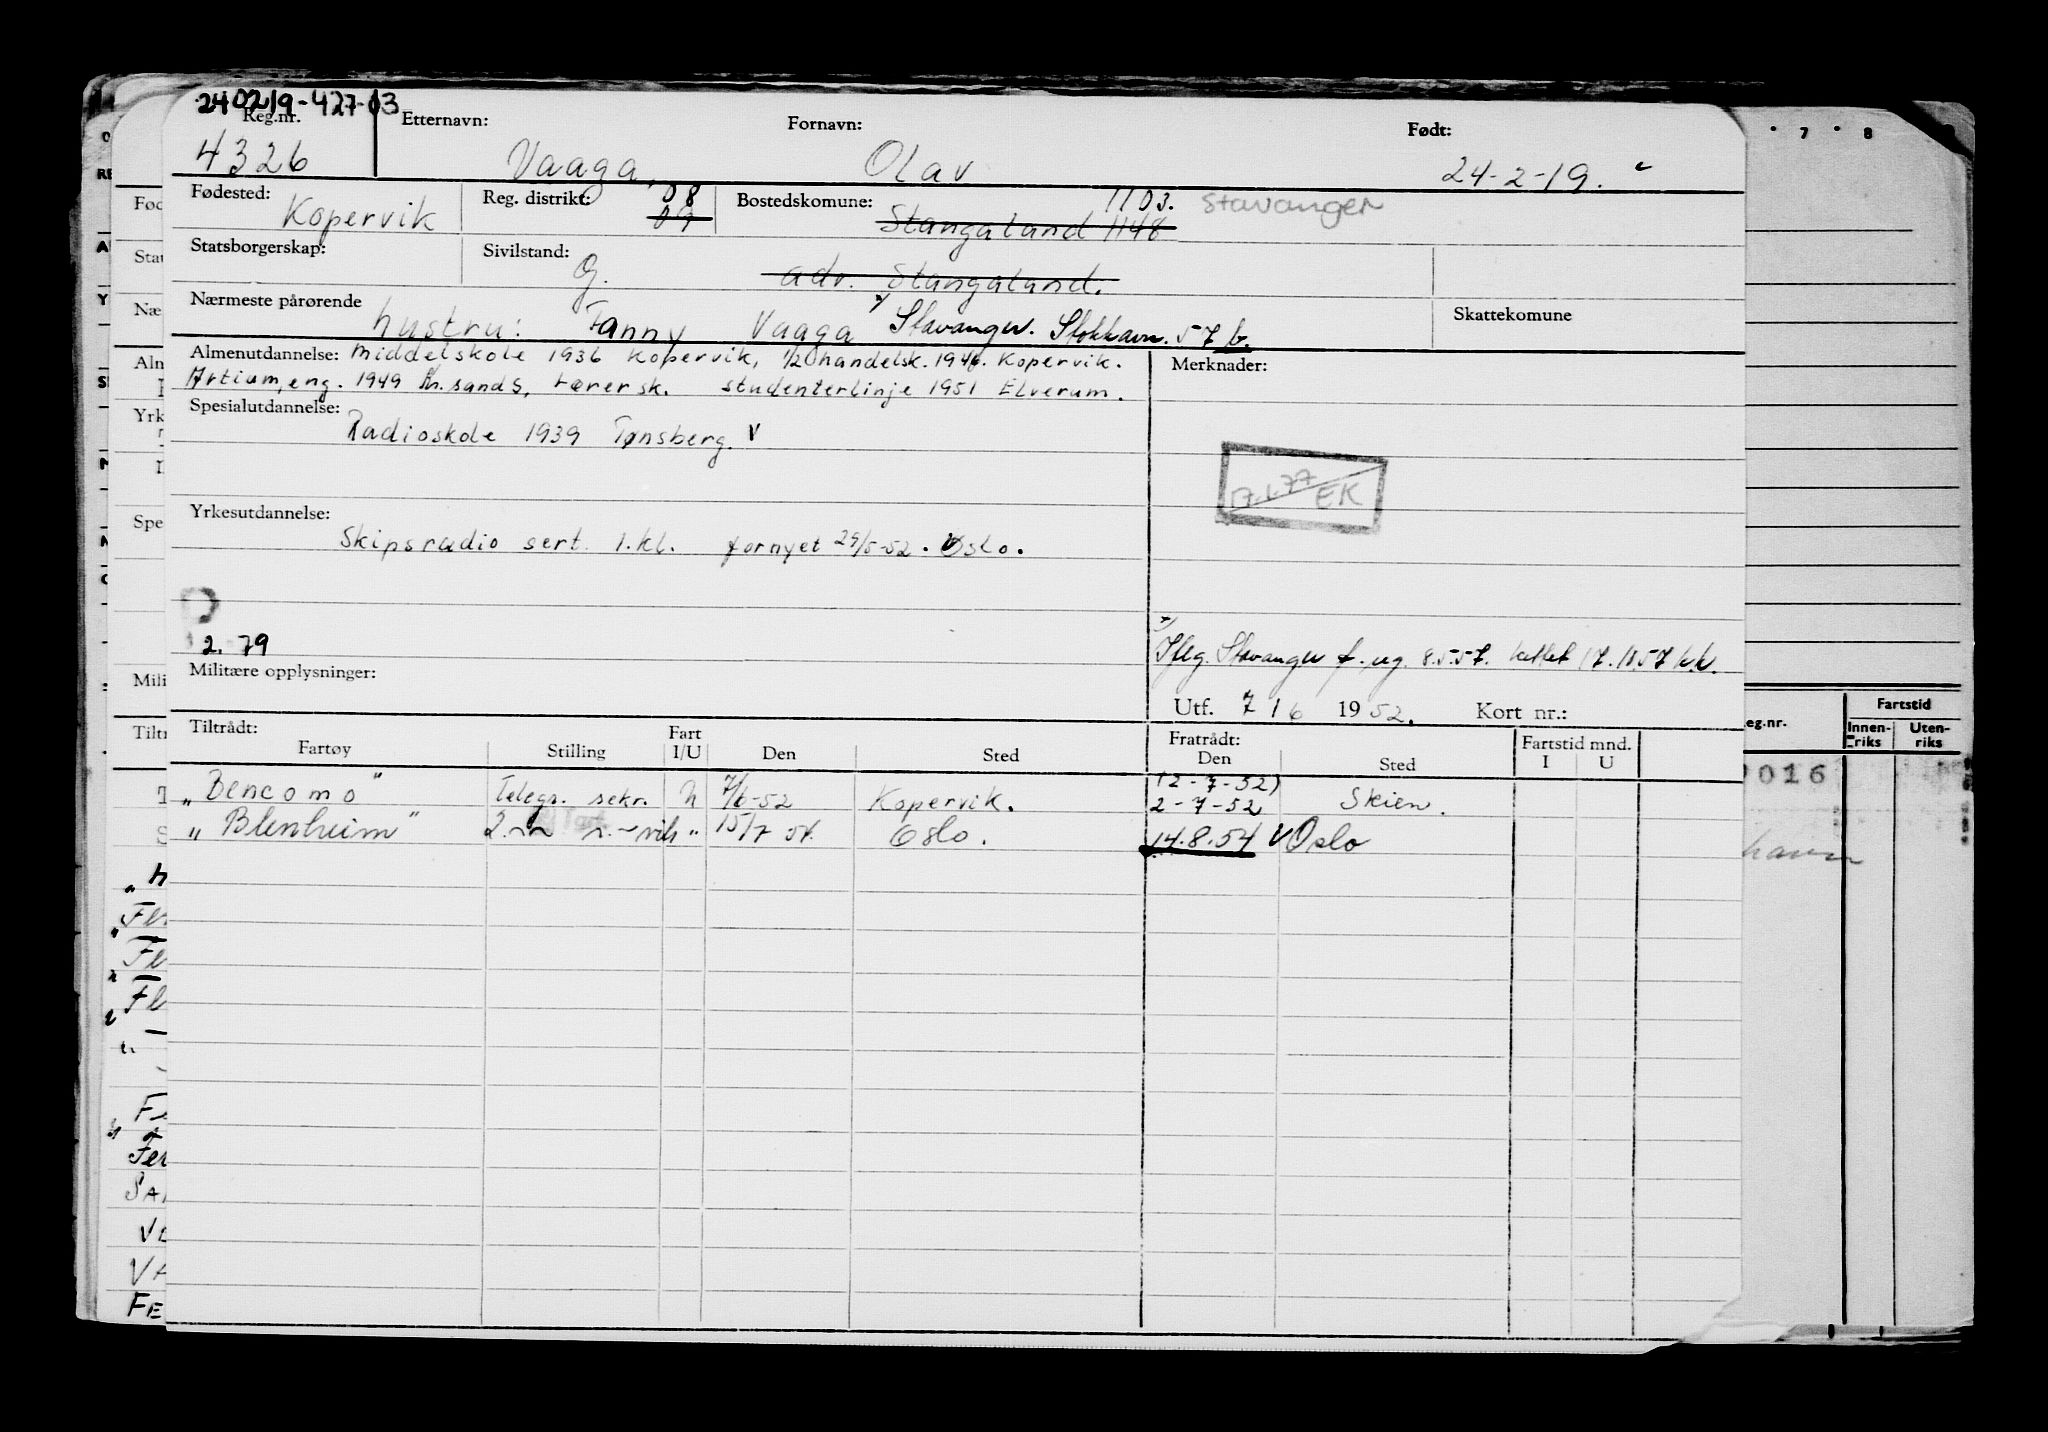 240219-427-03
Reg.nr. Etternavn: Fornavn: Født:
4326 Vaaga, Olav 24-2-19.
Fødested: Reg. distrikt: 08 Bostedskomune: 1103. Stavanger
Kopervik 09 Stangaland 1148
Statsborgerskap: Sivilstand: G. adr. Stangaland.
Nærmeste pårørende hustru: Fanny Vaaga Stavanger. Stokkavn. 57 b. Skattekomune
Almenutdannelse: Middelskole 1936 Kopervik, 1/2 handelsk. 1946. Kopervik. Merknader:
Artium, eng. 1949 Kr.sands, Lærer sk. studenterlinje 1951 Elverum.
Spesialutdannelse:
Radioskole 1939 Tønsberg. V
17.1.77 EK
Yrkesutdannelse:
Skipsradio sert. 1.kl. fornyet 29/5-52. Oslo.
2. 79
Stavanger 8.5.57.
Militære opplysninger:
Utf. 7/6 1952. Kort nr.:
Tiltrådt: Fart Fratrådt: Fartstid mnd.
Fartøy Stilling I/U Den Sted Den Sted I U
(2-7-52)
"Bencomo" Telegr. sekr. 7/6-52 Kopervik. 2-7-52 Skien.
"Blenheim" 2. " 15/7 54. Oslo. 14.8.54 V Oslo
7 8
eg.nr. Fartstid
Innenriks Utenriks
016
havn
Fød
Stat
Næ
Alm
Yrk
Spe
Mili
Tiltr